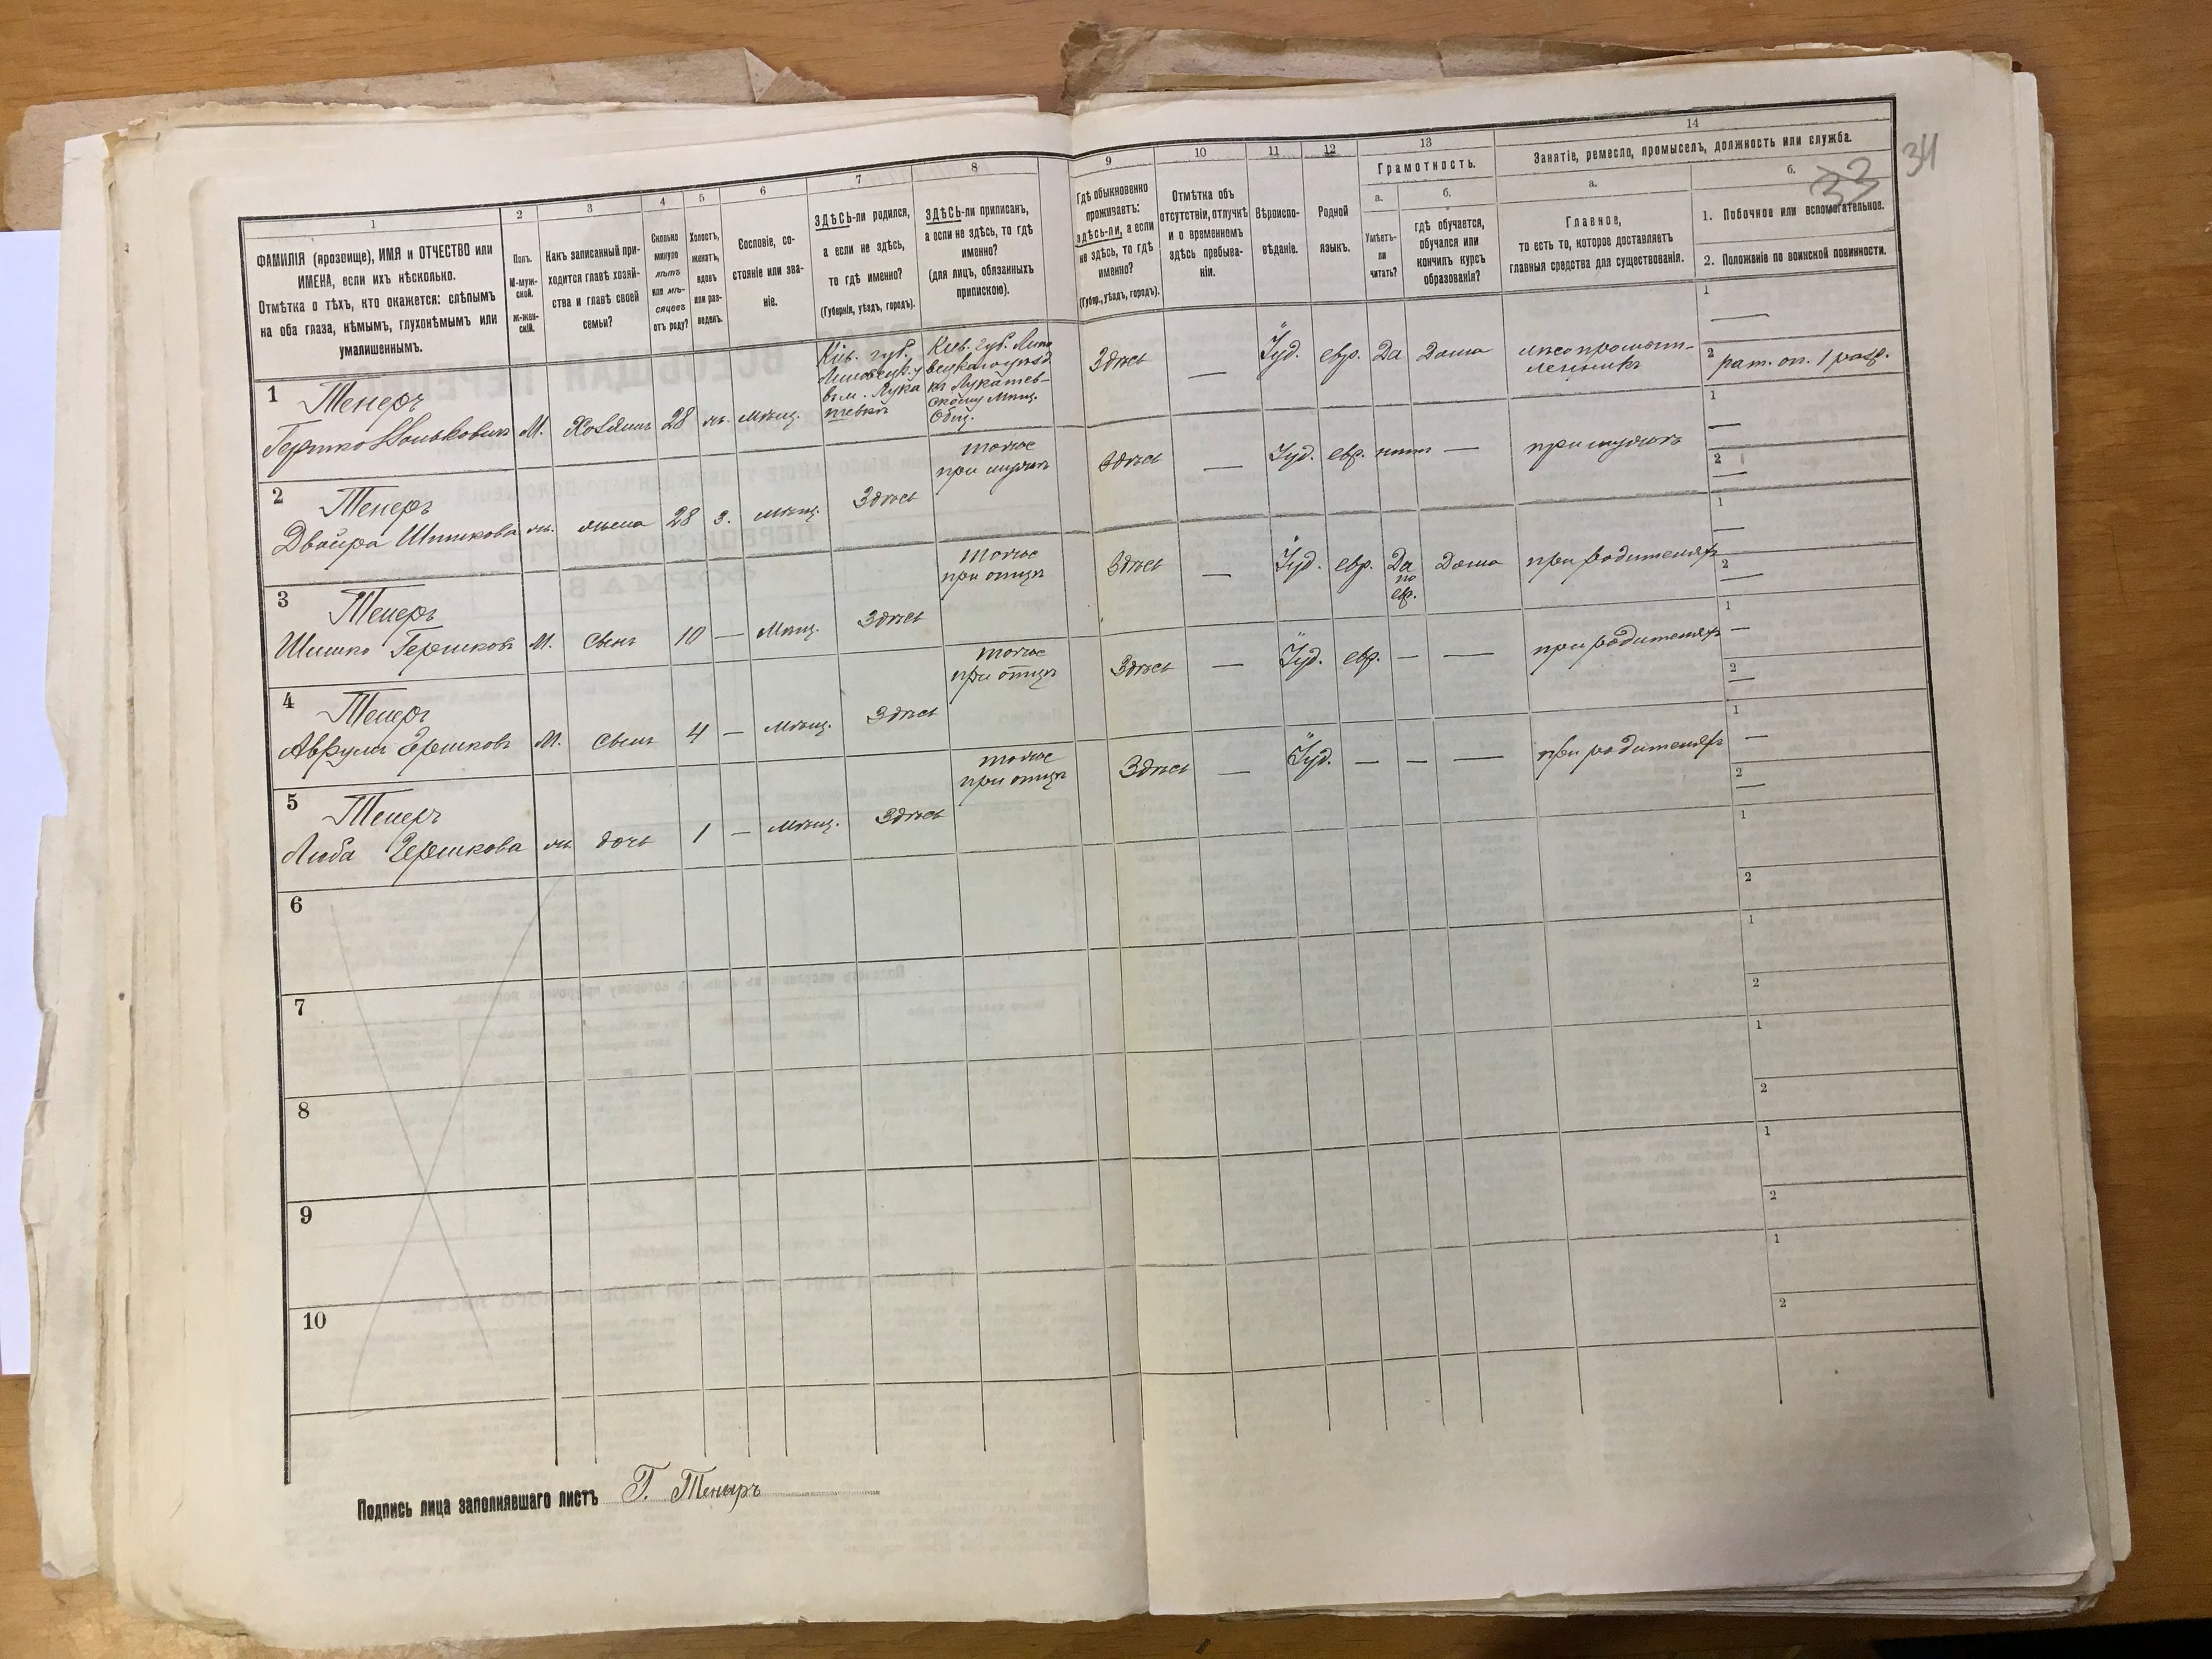 34
33
1
2
3
4
5
6
7
8
9
10
11
12
13
14
ФАМИЛІЯ (прозвище), ИМЯ и ОТЧЕСТВО или
ИМЕНА, если ихъ нѣсколько.
Отмѣтка о тѣхъ, кто окажется: слѣпымъ
на оба глаза, нѣмымъ, глухонѣмымъ или
умалишеннымъ.
Полъ.
М-муж-
ской.
Ж-жен-
скій.
Какъ записанный при-
ходится главѣ хозяй-
ства и главѣ своей
семьи?
Сколько
минуло
лѣтъ
или мѣ-
сяцевъ
отъ роду?
Холостъ,
женатъ,
вдовъ
или раз-
веденъ.
Сословіе, со-
стояніе или зва-
ніе.
ЗДѢСЬ-ли родился,
а если не здѣсь,
то гдѣ именно?
(Губернія, уѣздъ, городъ).
ЗДѢСЬ-ли приписанъ,
а если не здѣсь, то гдѣ
именно?
(для лицъ, обязанныхъ
припискою).
Гдѣ обыкновенно
проживаетъ:
здѣсь-ли, а если
не здѣсь, то гдѣ
именно?
(Губер., уѣздъ, городъ).
Отмѣтка объ
отсутствіи, отлучкѣ
и о временномъ
здѣсь пребыва-
ніи.
Вѣроиспо-
вѣданіе.
Родной
языкъ.
Грамотность.
а.
Умѣетъ-
ли
читать?
б.
гдѣ обучается,
обучался или
кончилъ курсъ
образованія?
Занятіе, ремесло, промыселъ, должность или служба.
а.
Главное,
то есть то, которое доставляетъ
главныя средства для существованія.
б.
1. Побочное или вспомогательное.
2. Положеніе по воинской повинности.
1
Тенеръ
Гершко
М.
Хозяинъ
28
ж.
мѣщ.
Кіев. губ.
Кіев. губ. Липо
вецкаго уѣзд
къ Лукашев-
скому Мѣщ.
Общ.
Здѣсь
—
Іуд.
евр.
Да
Дома
лѣсопромыш-
ленникъ
1
—
2 рат. оп. 1 разр.
2
Тенеръ
Двойра Шишкова
ж.
жена
28
з.
мѣщ.
Здѣсь
тоже
при мужѣ
Здѣсь
—
Іуд.
евр.
нѣтъ
—
при мужѣ
1
—
2
—
3
Тенеръ
Шишко Гершковъ
М.
Сынъ
10
—
Мѣщ.
Здѣсь
тоже
при отцѣ
Здѣсь
—
Іуд.
евр.
Да
по
евр.
Дома
при родителяхъ
1
—
2
—
4
Тенеръ
Аврумъ Гершковъ
М.
Сынъ
4
—
мѣщ.
Здѣсь
тоже
при отцѣ
Здѣсь
—
Іуд.
евр.
—
—
при родителяхъ
1
—
2
—
5
Тенеръ
Люба Гершкова
ж.
дочь
1
—
мѣщ.
Здѣсь
тоже
при отцѣ
Здѣсь
—
Іуд.
—
—
—
при родителяхъ
1
—
2
—
6
1
2
7
1
2
8
1
2
9
1
2
10
1
2
Подпись лица заполнявшаго листъ Г. Тенеръ